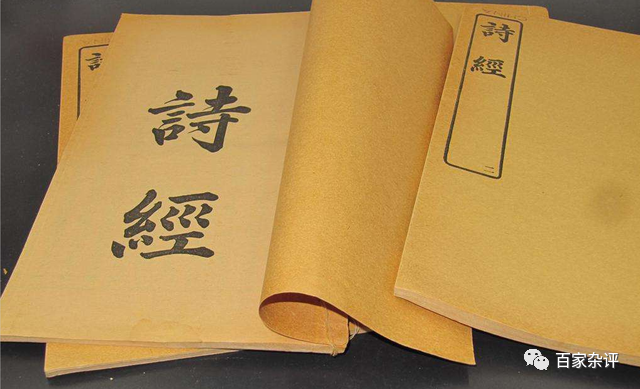 詩經
詩
經
詩經
二
百家杂评